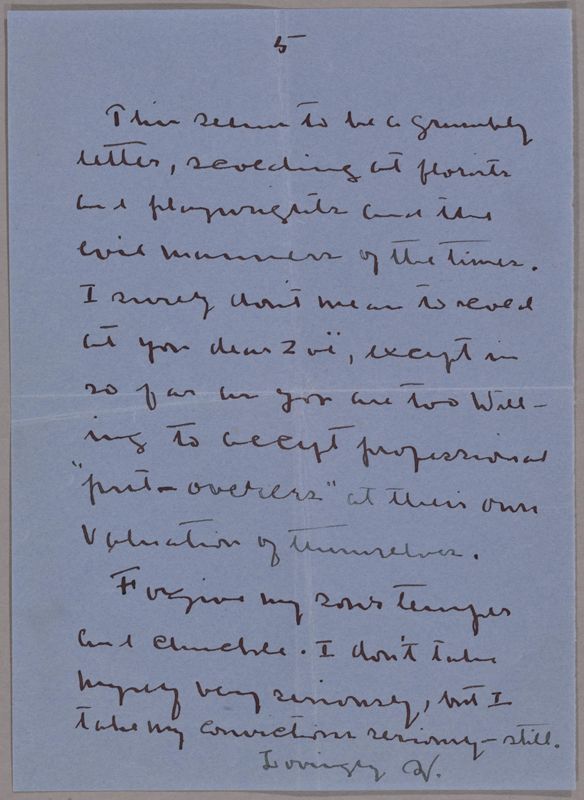 5
This seems to be a grumbly
letter, scolding at florists
and playwrights and the
evil manners of the times.
I surely don't mean to scold
at you dear Zoë, except in
so far as you are too will-
ing to accept professional
"put-overers" at their own
valuation of themselves.
Forgive my sour temper
and chuckle. I don't take
myself very seriously, but I
take my convictions seriously – still.
Lovingly V.